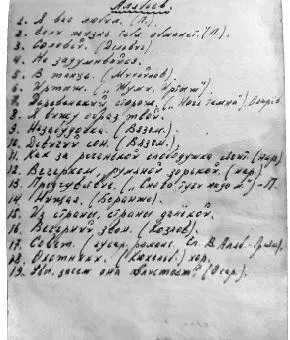 Алябьев
1. Я вас любил. (П.).
2. Если жизнь тебя обманет. (П.)
3. Соловей. (Дельвиг)
4. Не задумывайся.
5. В танце. (Михайлов).
6. Иртыш. („ Иртыш").
7. Деревенский сторож. („ Ночь темна"). Огарёв
8. Я вижу образ твой.
9. Незабудочка. (Вязем.).
10. Девичий сон. (Вязем.)
11. Как за реченькой слободушка стоит. (нар)
12. Вечерком румяной зорькой. (нар)
13. Предчувствие. („ Снова тучи надо м.") - П.
14. Нищая. (Беранже).
15. Из страны, страны далёкой.
16. Вечерний звон. (Козлов).
17. Совет. романс. Сл. В.
18. Охотники. (Кюхельб.) хор.
19. Что, зачем она блистает? (Огар.).